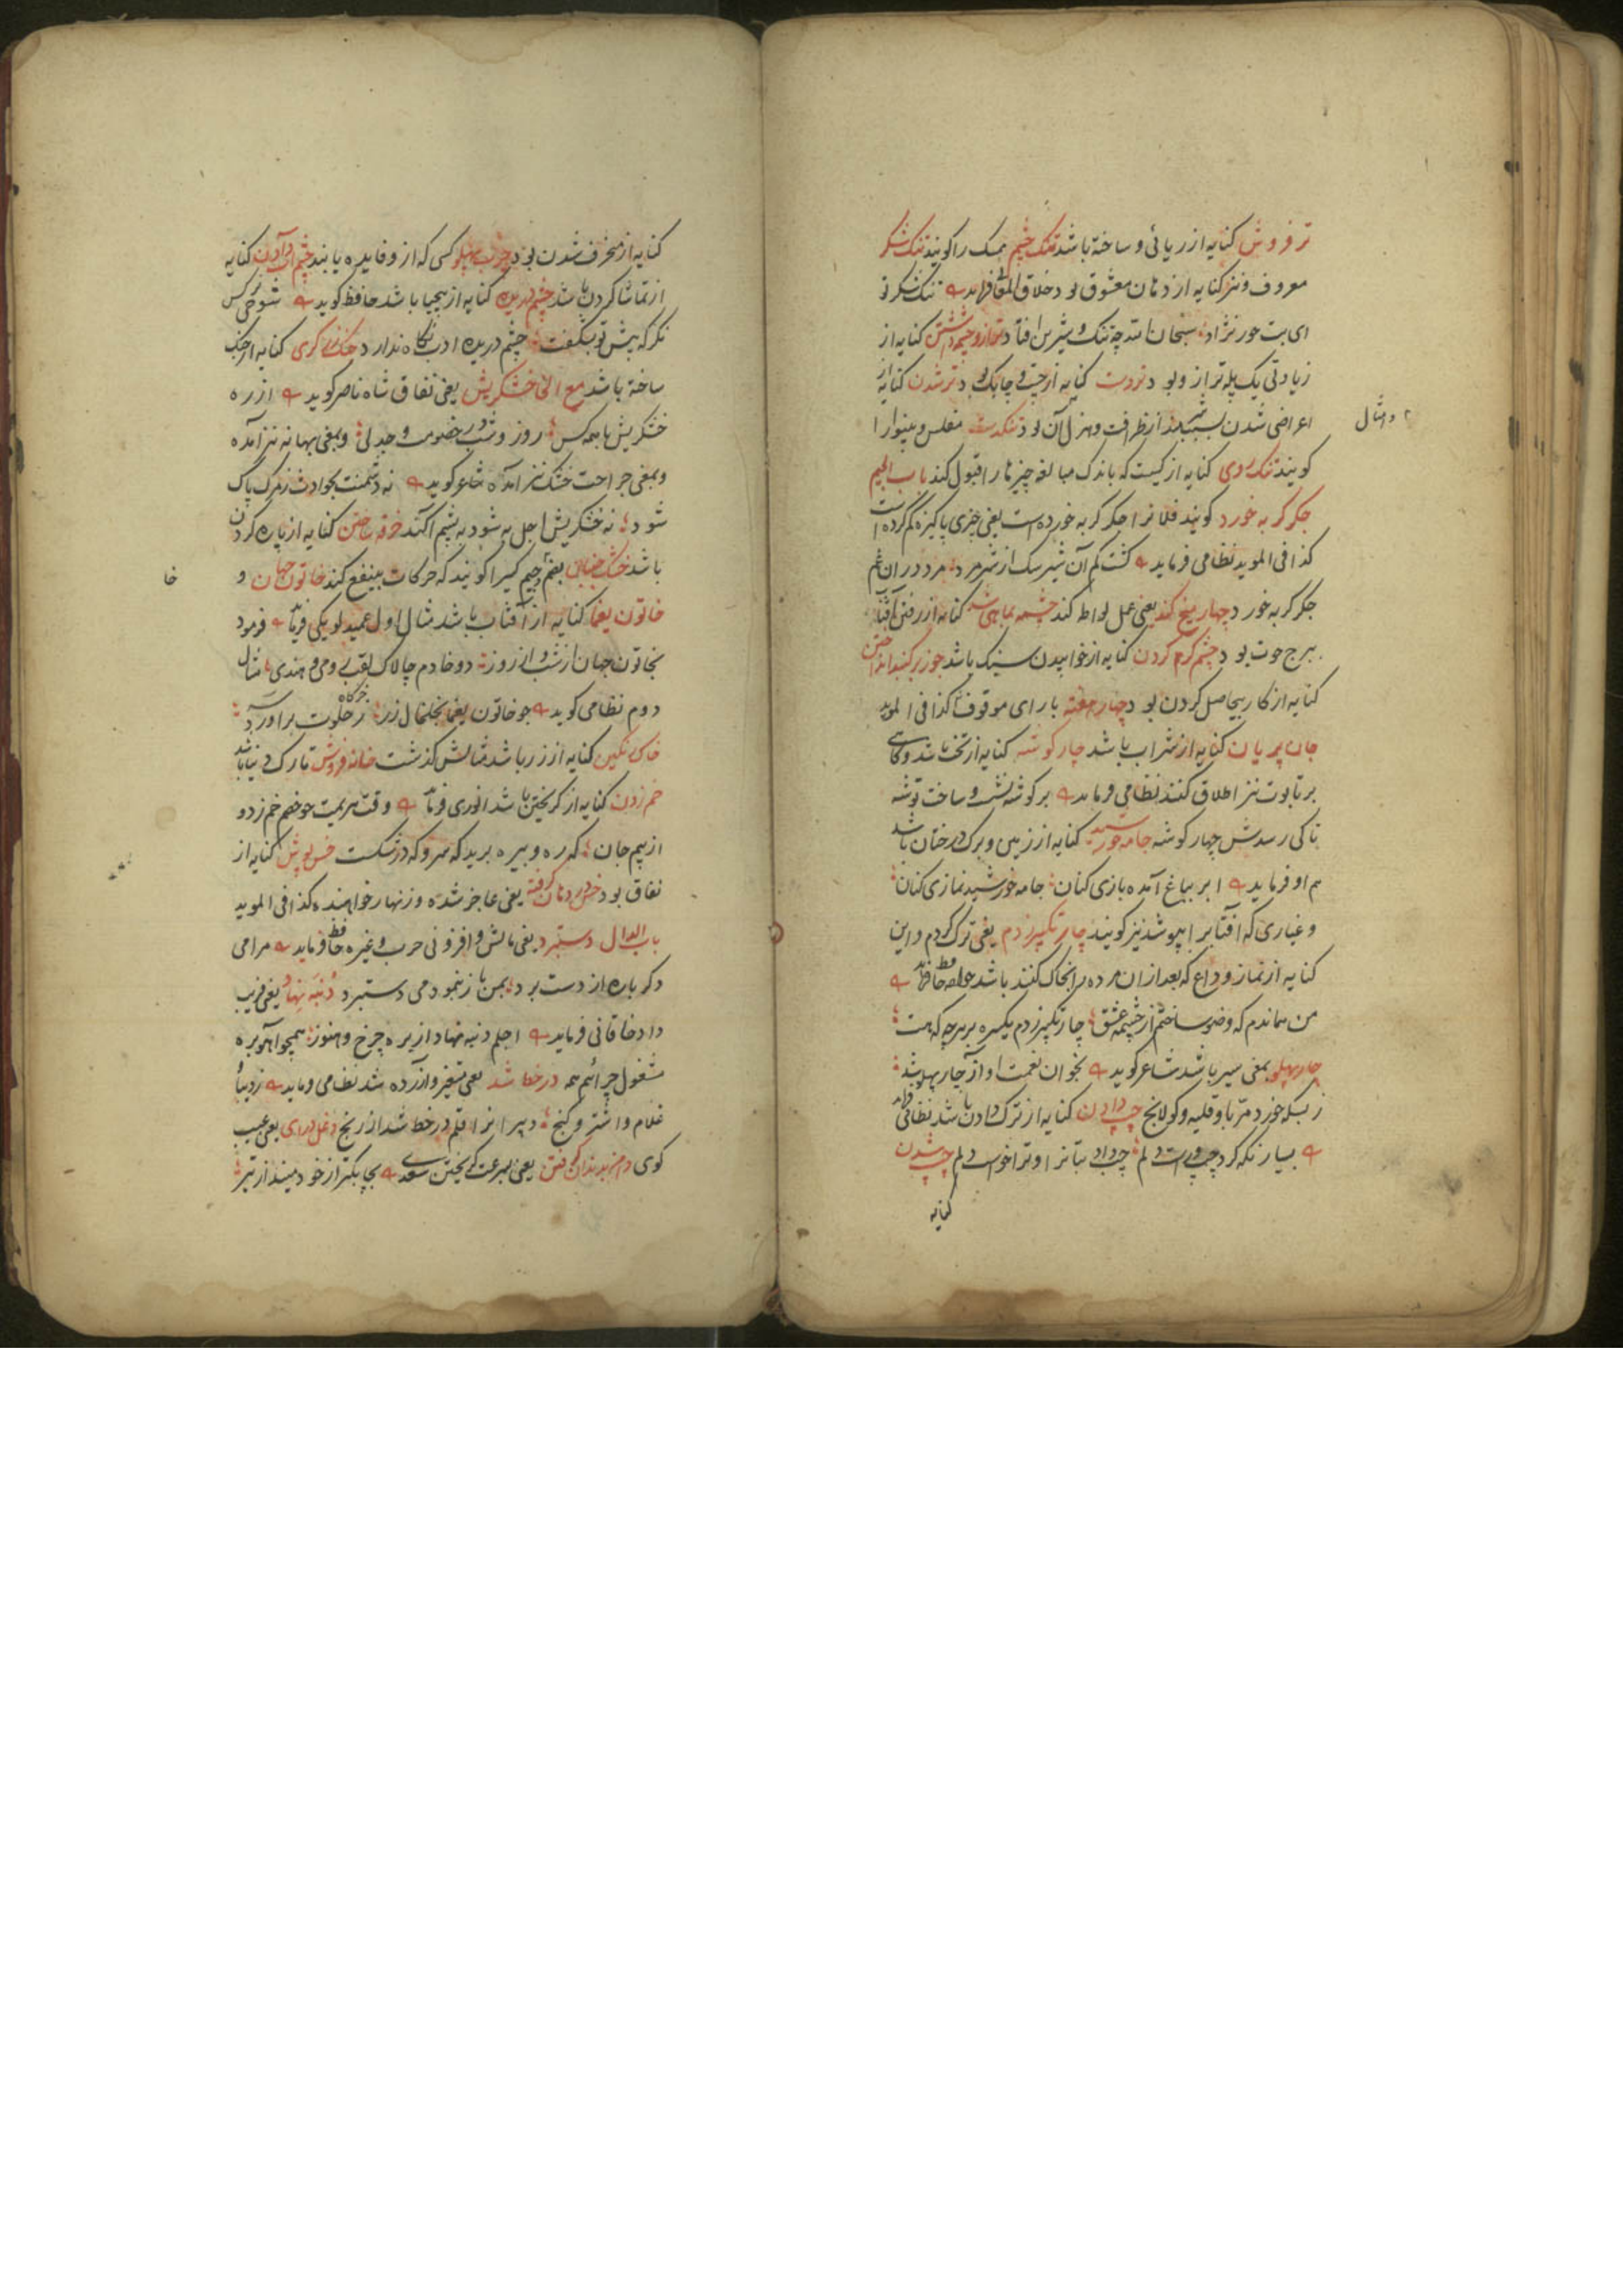 تر فروش کنایه از ریائی و ساخته باشد تنک چشم ممسک را کویند تنک شکر
معروف و نیز کنایه از دهان معشوق بود خلاق المعانی فرماید تنک شکر تو
ای بت حور نژاد سبحان الله چه تنک و شیرین افتاد ترازو چشمه داشتن کنایه از
زیادتی یک پله ترازو بود تردست کنایه از چست و چابک بود تر شدن کنایه از
اعراضی شدن بسبب از ظرافت و هزل آن بود تنکدست مفلس و بینوا را
و امثال
کویند تنک روی کنایه از کیست که باندک مبالغه چیزها را قبول کند باب الجیم
جکر کربه خورد کویند فلانرا جکر کربه خورده است یعنی چیزی پاکیزه کم کرده است
کذا فی الموید نظامی فرماید کشت کم آن شیر سک از شیر مرد مرد در ان غم
جکر کربه خورد چهار میخ کند یعنی عمل لواطه کند چشمه بماهی شد کنایه از رفتن آفتاب
ببرج حوت بود چشم کرم کردن کنایه از خوابیدن سبک باشد جوز بر کنبد انداختن
کنایه از کار بیحاصل کردن بود چهار هفته بارای موقوف کذا فی الموید
جان پریان کنایه از شراب باشد چار کوشه کنایه از تخت باشد و کاهی
بر تابوت نیز اطلاق کنند نظامی فرماید بر کوشه نشست و ساخت توشه
تا کی رسدش چهار کوشه جامه خورشید کنایه از زمین و برک درختان باشد
هم او فرماید ابر بباغ آمده بازی کنان جامه خورشید نمازی کنان
و غباری که آفتابرا بپوشد نیز کویند چار تکبیر زدم یعنی ترک کردم و این
کنایه از نماز وداع که بعد از ان مرده را بخاک کنند باشد خواجه حافظ فرماید
من هماندم که وضو ساختم از چشمه عشق چار تکبیر زدم یکسره بر هر چه که هست
چار پهلو بمعنی سیر باشد شاعر کوید بخوان نعمت او آز چار پهلو شد
ز بسکه خورد مربا و قلیه و کولانج چپ دادن کنایه از ترک دادن باشد نظامی فرماید
بسیار نکه کرد چپ و راست دلم چپ داد بتانرا و ترا خواست دلم چپ شدن
کنایه
کنایه از منحرف شدن بود چرب پهلو کسی که از و فایده یابند چشم آب دادن کنایه
از تماشا کردن باشد چشم دریده کنایه از بیحیا باشد حافظ کوید شوخی نرکس
نکر که پیش تو بشکفت چشم دریده ادب نکاه ندارد کنایه از جنک
ساخته باشد مع الخا خشکریش یعنی نفاق شاه ناصر کوید از ره
خشکریش با همه کس روز و شب در خصومت و جدلی و بمعنی بهانه نیز آمده
و بمعنی جراحت خشک نیز آمده شاعر کوید نه دشمنت بحوادث ز مرک پاک
شود نه خشکریش اجل به شود به پشم اکند خرقه ساختن کنایه از پاره کردن
باشد خشک جنبان بضم جیم کسیرا کویند که حرکات بینفع کند خاتون جهان و
خا
خاتون یغما کنایه از آفتاب باشد مثال اول عمید لویکی فرماید فرمود
بخاتون جهان از شب و از روز دو خادم چالاک بلقب رومی و هندی مثال
دوم نظامی کوید چو خاتون یغما بخلخال زر ز خرکاه خلوت برآورد سر
خاک رنکین کنایه از زر باشد مثالش کذشت خانه فروش تارک دنیا باشد
خم زدن کنایه از کریختن باشد انوری فرماید وقت هزیمت چو خصم خم زد و
از بیم جان که ره و بیره برید که سر و که در شکست خس پوش کنایه از
نفاق بود خس در دهان کرفته یعنی عاجز شده و زنهار خواهنده کذا فی الموید
باب الدال دستبرد یعنی مالش و افزونی حرب و غیره حافظ فرماید مرا می
دکر باره از دست برد بمن باز بنمود می دستبرد دنبه نهاد یعنی فریب
داد خاقانی فرماید اجلم دنبه نهاد از بره چرخ و هنوز همچو آهو بره
مشغول چرائم همه در خط شد یعنی متغیر و آزرده شد نظامی فرماید ز دیبا
غلام و اشتر و کنج دبیرانرا قلم در خط شد از رنج دغل درای یعنی عیب
کوی دامن بدندان کرفتن یعنی بسرعت کریختن سعدی بچابکتر از خود مینداز تیر